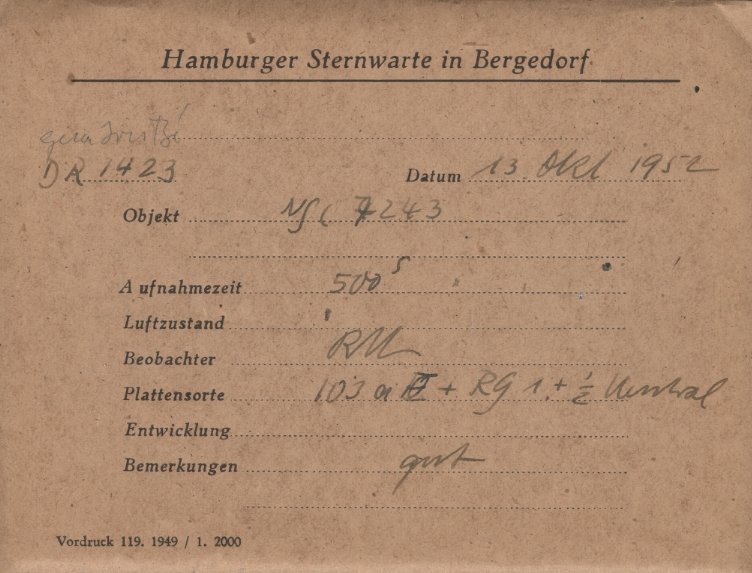 Hamburger Sternwarte in Bergedorf
DR 1423
Datum 13 Okt 1952
Objekt NGC 7243
Aufnahmezeit 500 s
Luftzustand
Beobachter
Plattensorte 103 a E + RG 1 + ½ Neutral
Entwicklung
Bemerkungen gut
Vordruck 119. 1949 / 1. 2000